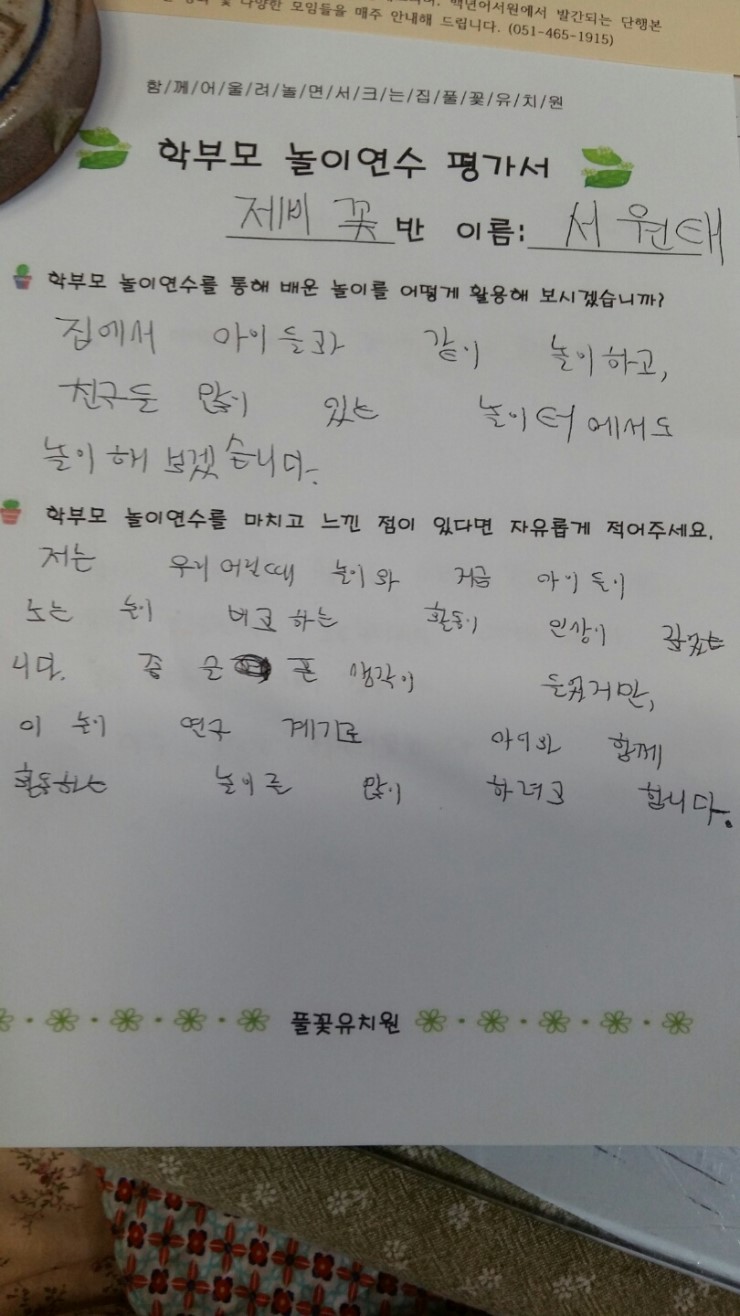 다양한 모임들을 매주 안내해 드립니다. (051-465-1915)
백년어서원에서 발간되는 단행본
함/께/어/울/려/놀/면/서/크/는/집/풀/꽃/유/치/원
학부모 놀이연수 평가서
제비 꽃 반 이름: 서 원태
학부모 놀이연수를 통해 배운 놀이를 어떻게 활용해 보시겠습니까?
집에서 아이들과 같이 놀이하고,
친구들 많이 있는 놀이터에서도
놀이 해 보겠습니다.
학부모 놀이연수를 마치고 느낀 점이 있다면 자유롭게 적어주세요.
저는 우리 어릴때 놀이와 지금 아이들이
노는 놀이 비교하는 활동이 인상이
니다. 좀 슬픈 생각이 들었지만,
이 놀이 연구 계기로 아이와 함께
활동하는 놀이를 많이 하려고 합니다.
풀꽃유치원